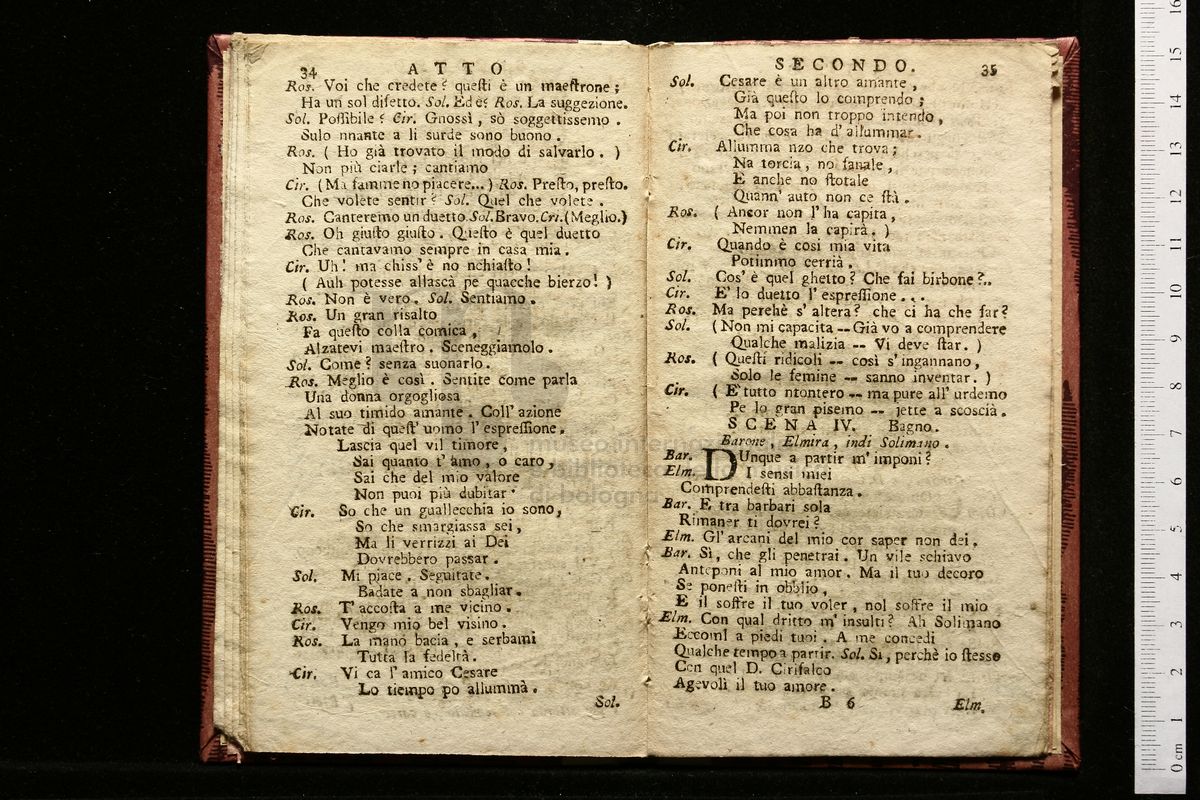 34
ATTO
Ros. Voi che credete? questi è un maestrone;
Ha un sol difetto. Sol. Ed è? Ros. La suggezione.
Sol. Possibile? Cir. Gnossì, sò soggettissemo.
Sulo nnante a li surde sono buono.
Ros. ( Ho già trovato il modo di salvarlo. )
Non più ciarle; cantiamo
Cir. (Ma famme no piacere...) Ros. Presto, presto.
Che volete sentir? Sol. Quel che volete.
Ros. Canteremo un duetto Sol. Bravo. Cri. (Meglio.)
Ros. Oh giusto giusto. Questo è quel duetto
Che cantavamo sempre in casa mia.
Cir. Uh! ma chiss' è no nchiasto!
( Auh potesse allascà pe quacche bierzo! )
Ros. Non è vero. Sol. Sentiamo.
Ros. Un gran risalto
Fa questo colla comica,
Alzatevi maestro. Sceneggiamolo.
Sol. Come? senza suonarlo.
Ros. Meglio è così. Sentite come parla
Una donna orgogliosa
Al suo timido amante. Coll' azione
Notate di quest' uomo l' espressione.
Lascia quel vil timore,
Sai quanto t' amo, o caro,
Sai che del mio valore
Non puoi più dubitar
Cir. So che un guallecchia io sono,
So che smargiassa sei,
Ma li verrizzi ai Dei
Dovrebbero passar.
Sol. Mi piace. Seguitate.
Badate a non sbagliar.
Ros. T' accosta a me vicino.
Cir. Vengo mio bel visino.
Ros. La mano bacia, e serbami
Tutta la fedeltà.
Cir. Vi ca l' amico Cesare
Lo tiempo po allummà.
Sol.
SECONDO.
35
Sol. Cesare è un altro amante,
Già questo lo comprendo;
Ma poi non troppo intendo,
Che cosa ha d' allummar.
Cir. Allumma nzo che trova;
Na torcia, no fanale,
E anche no stotale
Quann' auto non ce stà.
Ros. ( Ancor non l' ha capita,
Nemmen la capirà. )
Cir. Quando è così mia vita
Potimmo cerrià.
Sol. Cos' è quel ghetto? Che fai birbone?..
Cir. E' lo duetto l' espressione...
Ros. Ma perchè s' altera? che ci ha che far?
Sol. (Non mi capacita -- Già vo a comprendere
Qualche malizia -- Vi deve star. )
Ros. ( Questi ridicoli -- così s' ingannano,
Solo le femine -- sanno inventar. )
Cir. ( E' tutto ntontero -- ma pure all' urdemo
Pe lo gran pisemo -- jette a scoscià.
SCENA IV. Bagno.
Barone, Elmira, indi Solimano.
Bar. DUnque a partir m' imponi?
Elm. I sensi miei
Comprendesti abbastanza.
Bar. E tra barbari sola
Rimaner ti dovrei?
Elm. Gl' arcani del mio cor saper non dei.
Bar. Sì, che gli penetrai. Un vile schiavo
Anteponi al mio amor. Ma il tuo decoro
Se ponesti in obblio,
E il soffre il tuo voler, nol soffre il mio
Elm. Con qual dritto m' insulti? Ah Solimano
Eccomi a piedi tuoi. A me concedi
Qualche tempo a partir. Sol. Sì, perchè io stesso
Con quel D. Cirifalco
Agevoli il tuo amore.
B 6
Elm.